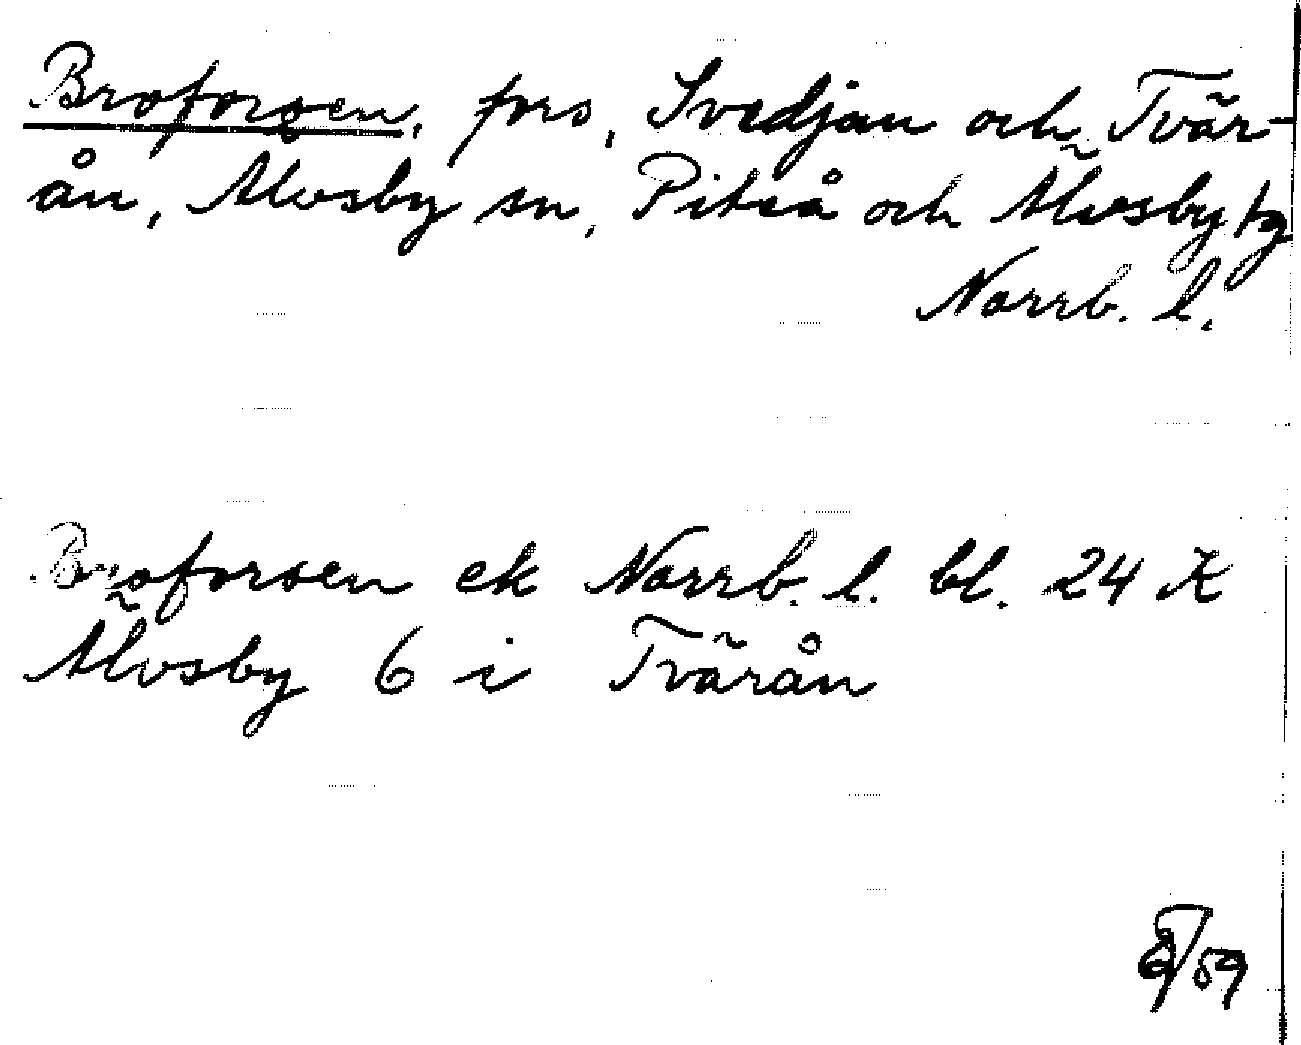 Broforsen, fors, Svedjan och Tvär-
ån, Älvsby sn, Piteå och Älvsby tg
Norrb. l.
Broforsen ek Norrb. l. bl. 24 K
Älvsby 6 i Tvärån